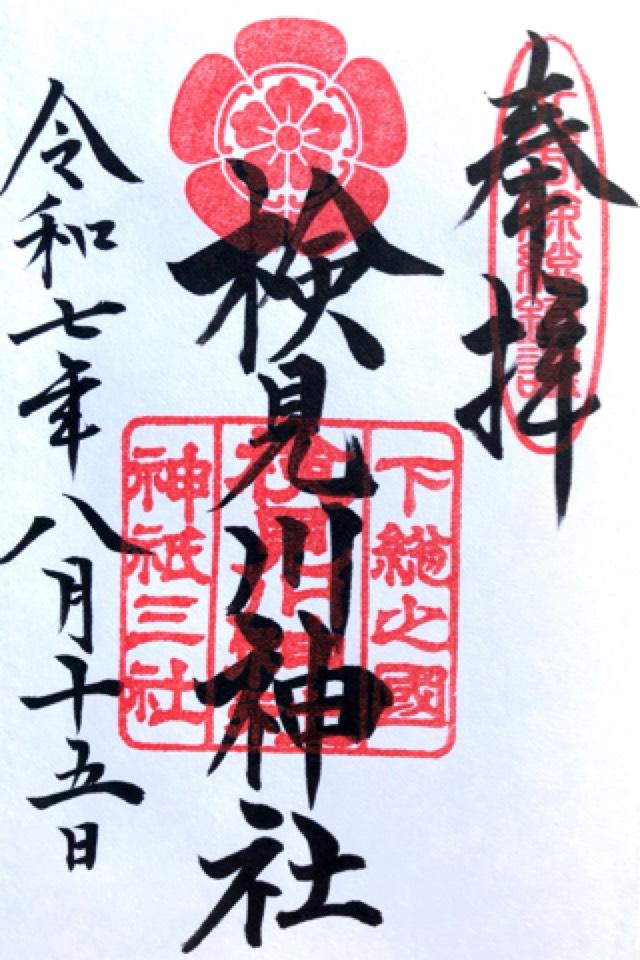 奉拝
下總之國
検見川神社
神祇三社
令和七年八月十五日